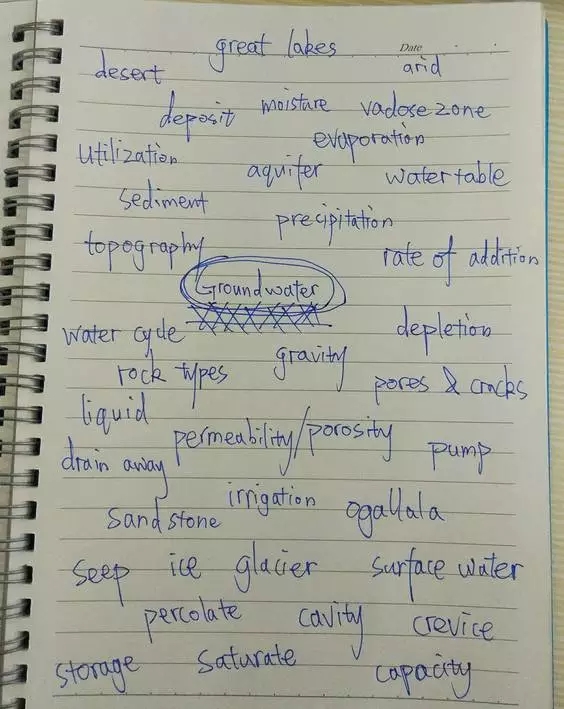 great lakes
Date
desert
arid
moisture
deposit
vadose zone
evaporation
utilization
aquifer
water table
sediment
precipitation
topography
rate of addition
Groundwater
water cycle
depletion
gravity
rock types
pores & cracks
liquid
permeability/porosity
pump
drain away
irrigation
ogallala
sandstone
seep ice glacier surface water
percolate cavity crevice
storage saturate capacity